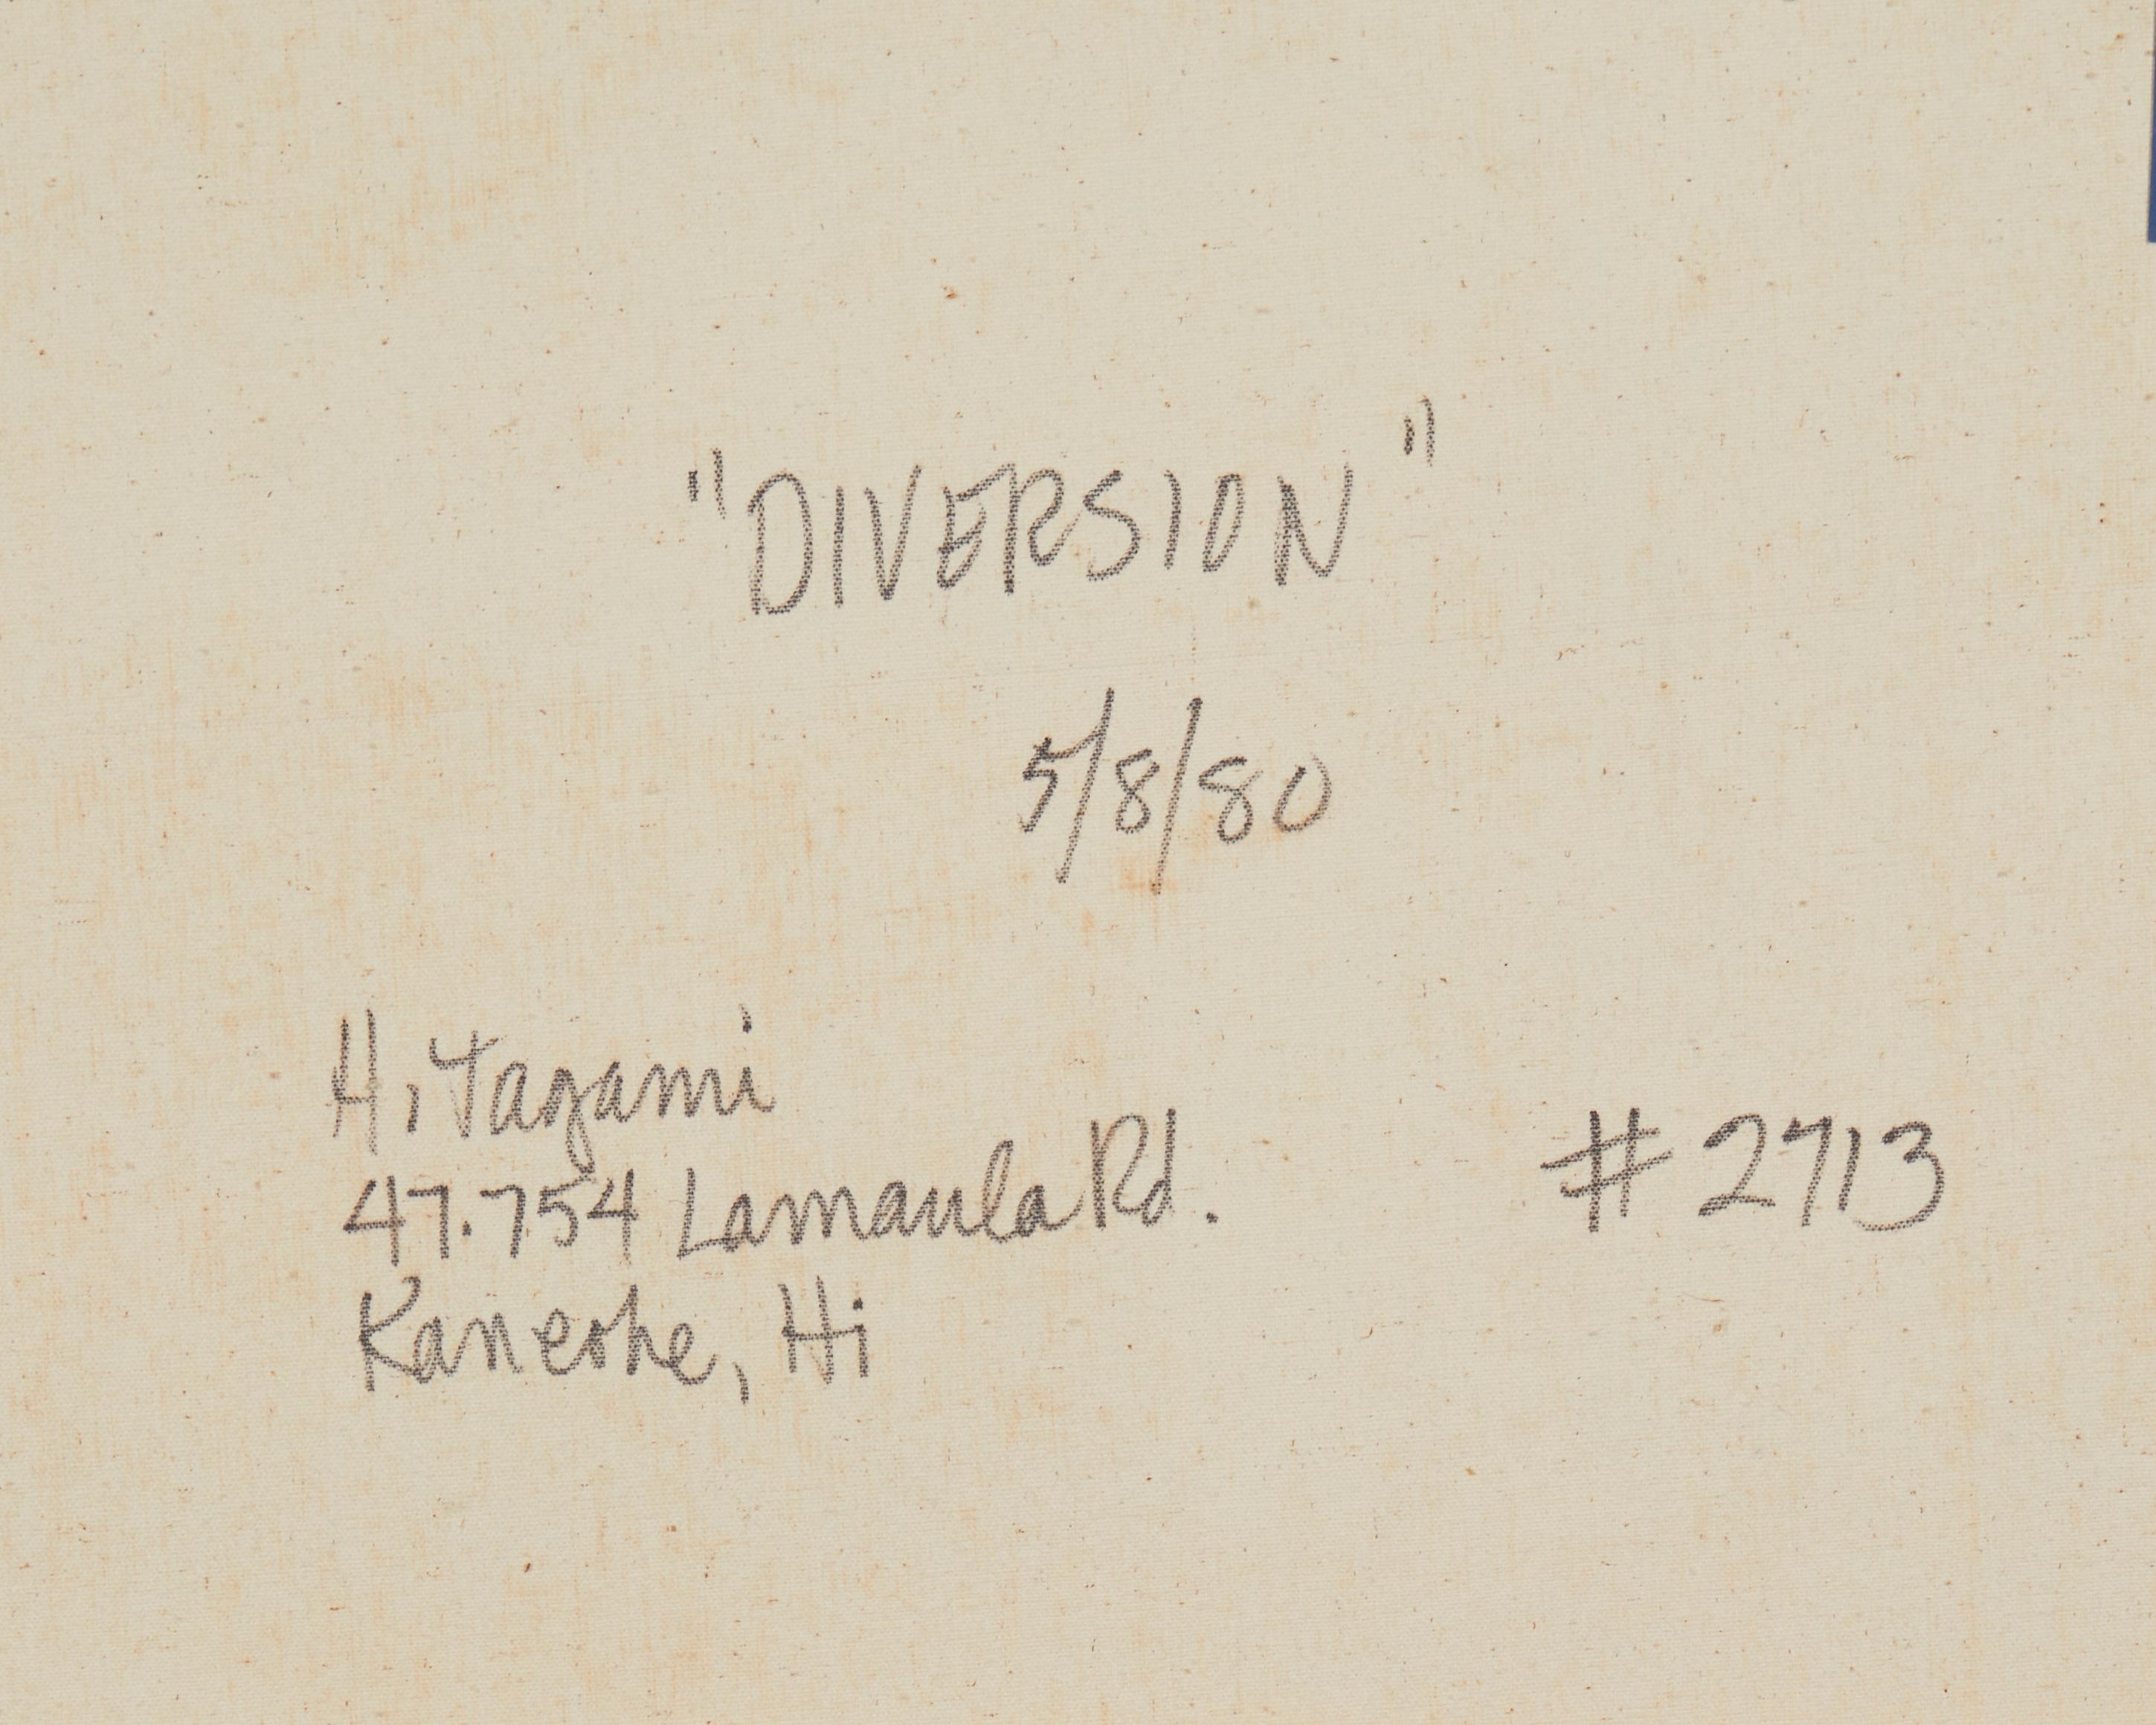 "DIVERSION"
5/8/80
H. Tagami
47.754 Lamaula Rd.
Kaneohe, Hi
# 2713